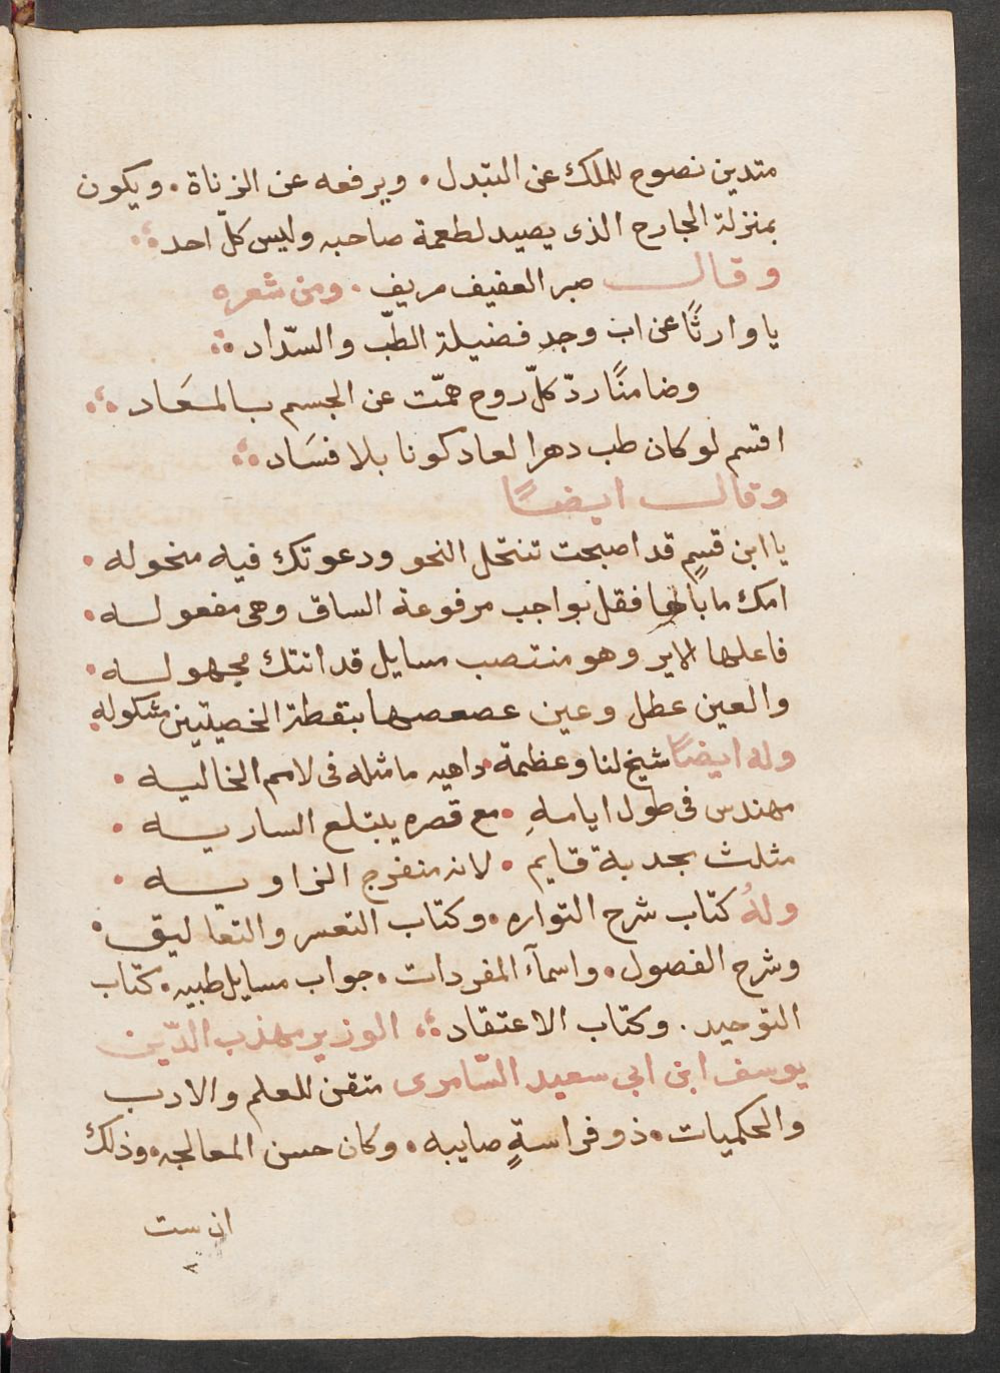 متدين نصوح للملك عن التبدل • ويرفعه عن الزناة • ويكون
بمنزلة الجارح الذى يصيد لطعمة صاحبه وليس كلّ احد
وقال صبر العفيف مريف • ومن شعره
يا وارثًا عن اب وجدٍ فضيلة الطبّ والسدّاد
وضامنًا ردّ كلّ روح همّت عن الجسم بالمعَاد
اقسم لو كان طب دهرا لعاد كونا بلا فسَاد
وقال ايضًا
يا ابن قسيمٍ قد اصبحت تنتحل النحو ودعوتك فيه منحوله •
امك ما بالها فقل بواجب مرفوعة الساق وهى مفعوله •
فاعلها الاير وهو منتصب مسايل قد اتتك مجهوله •
والعين عطل وعين عصعصها بنقطة الخصيتين مشكوله •
وله ايضًا شيخ لنا وعظمة • داهيه ما مثله فى لامم الخاليه •
مهندس فى طول ايامهِ • مع قصره يبتلع الساريه •
مثلث بجدبة قايم • لانه منفرج الزاويه •
ولهُ كتاب شرح التواره • وكتاب التعسر والتعاليق •
وشرح الفصول • واسمآء المفردات • جواب مسايل طبيه • كتاب
التوحيد • وكتاب الاعتقاد الوزير مهذب الدّين
يوسف ابن ابي سعيد السّامرى متقن للعلم والادب
والحكميات • ذو فراسةٍ صايبه • وكان حسن المعالجه • وذلك
ان ست